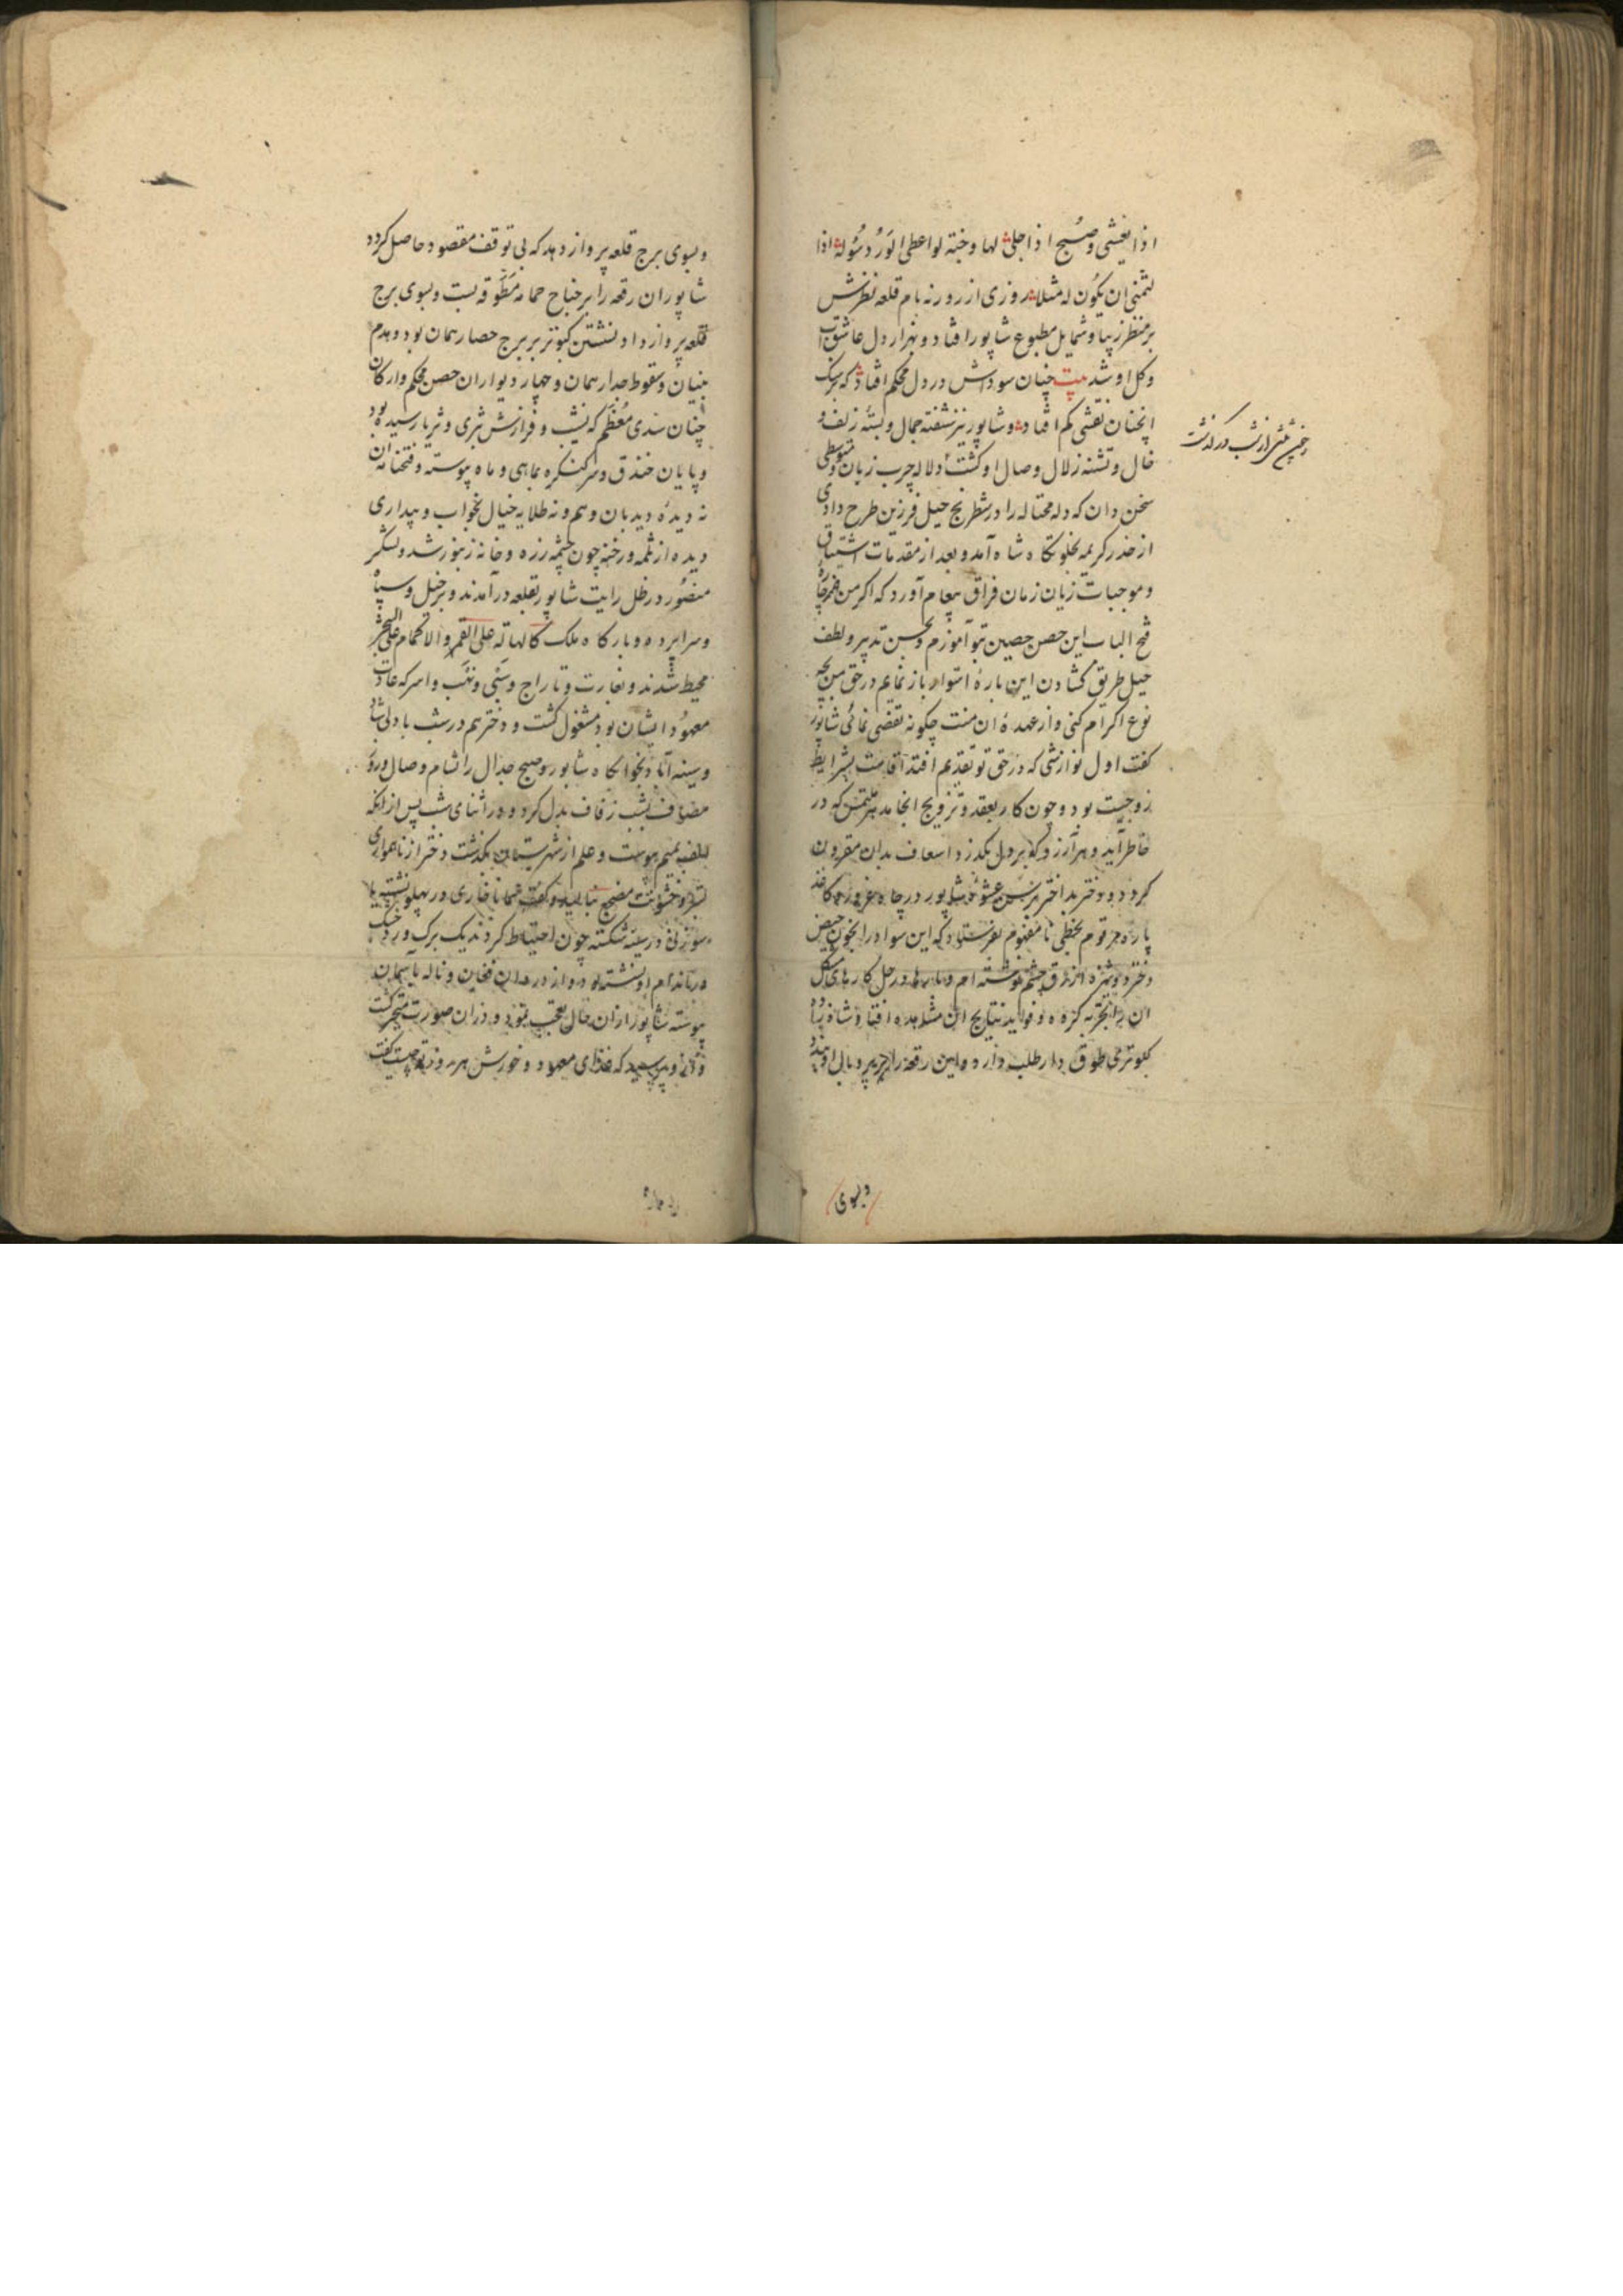 اذا یغشی و صبح اذا جلی لها وجنة لو اعطی الورد سؤله اذا
لتمنی ان یکون له مثلا روزی از روزنه بام قلعه نظرش
بر منظر زیبا و شمایل مطبوع شاپور افتاد و بهزار دل عاشق
و کل او شد بیت چنان سوداش در دل محکم افتاد که بر سنک
انچنان نقشی کم افتاد و شاپور نیز شفته جمال و بسته زلف و
خال و تشنه زلال وصال او کشت دلاله چرب زبان و متوسطی
سخن دان که دله محتاله را در شطرنج حیل فرزین طرح دادی
از خدر کریمه بخلوتکاه شاه آمد و بعد از مقدمات اشتیاق
و موجبات زیان زمان فراق پیغام آورد که اکر من
فتح الباب این حصن حصین بتو آموزم و بحسن تدبیر و لطف
حیل طریق کشادن این باره استوار باز نمایم در حق من بچه
نوع اکرام کنی و از عهده ان منت چکونه تقصی نمائی شاپور
کفت اول نوازشی که در حق تو تقدیم افتد اقامت بشرایط
زوجیت بود و چون کار بعقد و تزویج انجامد هر ملتمس که در
خاطر آید و هر آرزو که بر دل بکذرد اسعاف بدان مقرون
کردد و دختر بد اختر عشوه شاپور در چاه غرور کاغذ
پاره مرقوم بخطی نا مفهوم بفرستاد که این سواد را بخون حیض
دختر دوشیزه ازرق چشم نوشته ام و بارها در حل کارهای مشکل
ان را تجربه کرده و فواید نتایج ان مشاهده افتاد شاه
کبوتری طوق دار طلب دارد و این رقعه را بر پر و بال او بندد
و بسوی
و بسوی برج قلعه پرواز دهد که بی توقف مقصود حاصل کردد
شاپور ان رقعه را بر جناح حمامه مطوقه بست و بسوی برج
قلعه پرواز داد نشستن کبوتر بر برج حصار همان بود و هدم
بنیان و سقوط جدار همان و چهار دیوار ان حصن محکم و ارکان
چنان سدی معظم که نشیب و فرازش بثری و ثریا رسیده بود
و پایان خندق و سر کنکره بماهی و ماه پیوسته و فتحنامه ان
نه دیده دیدبان وهم و نه طلایه خیال بخواب و بیداری
دیده از ثلمه و رخنه چون چشمه زره و خانه زنبور شد و لشکر
منصور در ظل رایت شاپور بقلعه در آمدند و بر خیل و سپاه
و سراپرده و بارکاه ملک کالهالة علی القمر و الاکمام علی الثمر
محیط شدند و بغارت و تاراج و سبی و نهب و اسر که عادت
معهود ایشان بود مشغول کشت و دختر هم در شب با دلی شاد
و سینه آباد بخوابکاه شاپور و صبح جدال را بشام وصال و روز
مضاف بشب زفاف بدل کرد و در اثنای شب پس از انکه
الف بمیم پیوست و علم از شهرستان بکذشت دختر از ناهمواری
بستر و خشونت مضجع بنالید و کفت همانا خاری در پهلو نشسته یا
سوزنی در سینه شکسته چون احتیاط کردند یک برک ورد خشک
در اندام او نشسته بود و از درد ان فغان و ناله باسمان
پیوسته شاپور از ان حال تعجب نمود و در ان صورت متحیر کشت
و از و پرسید که غذای معهود و خورش هر روز تو چیست کفت